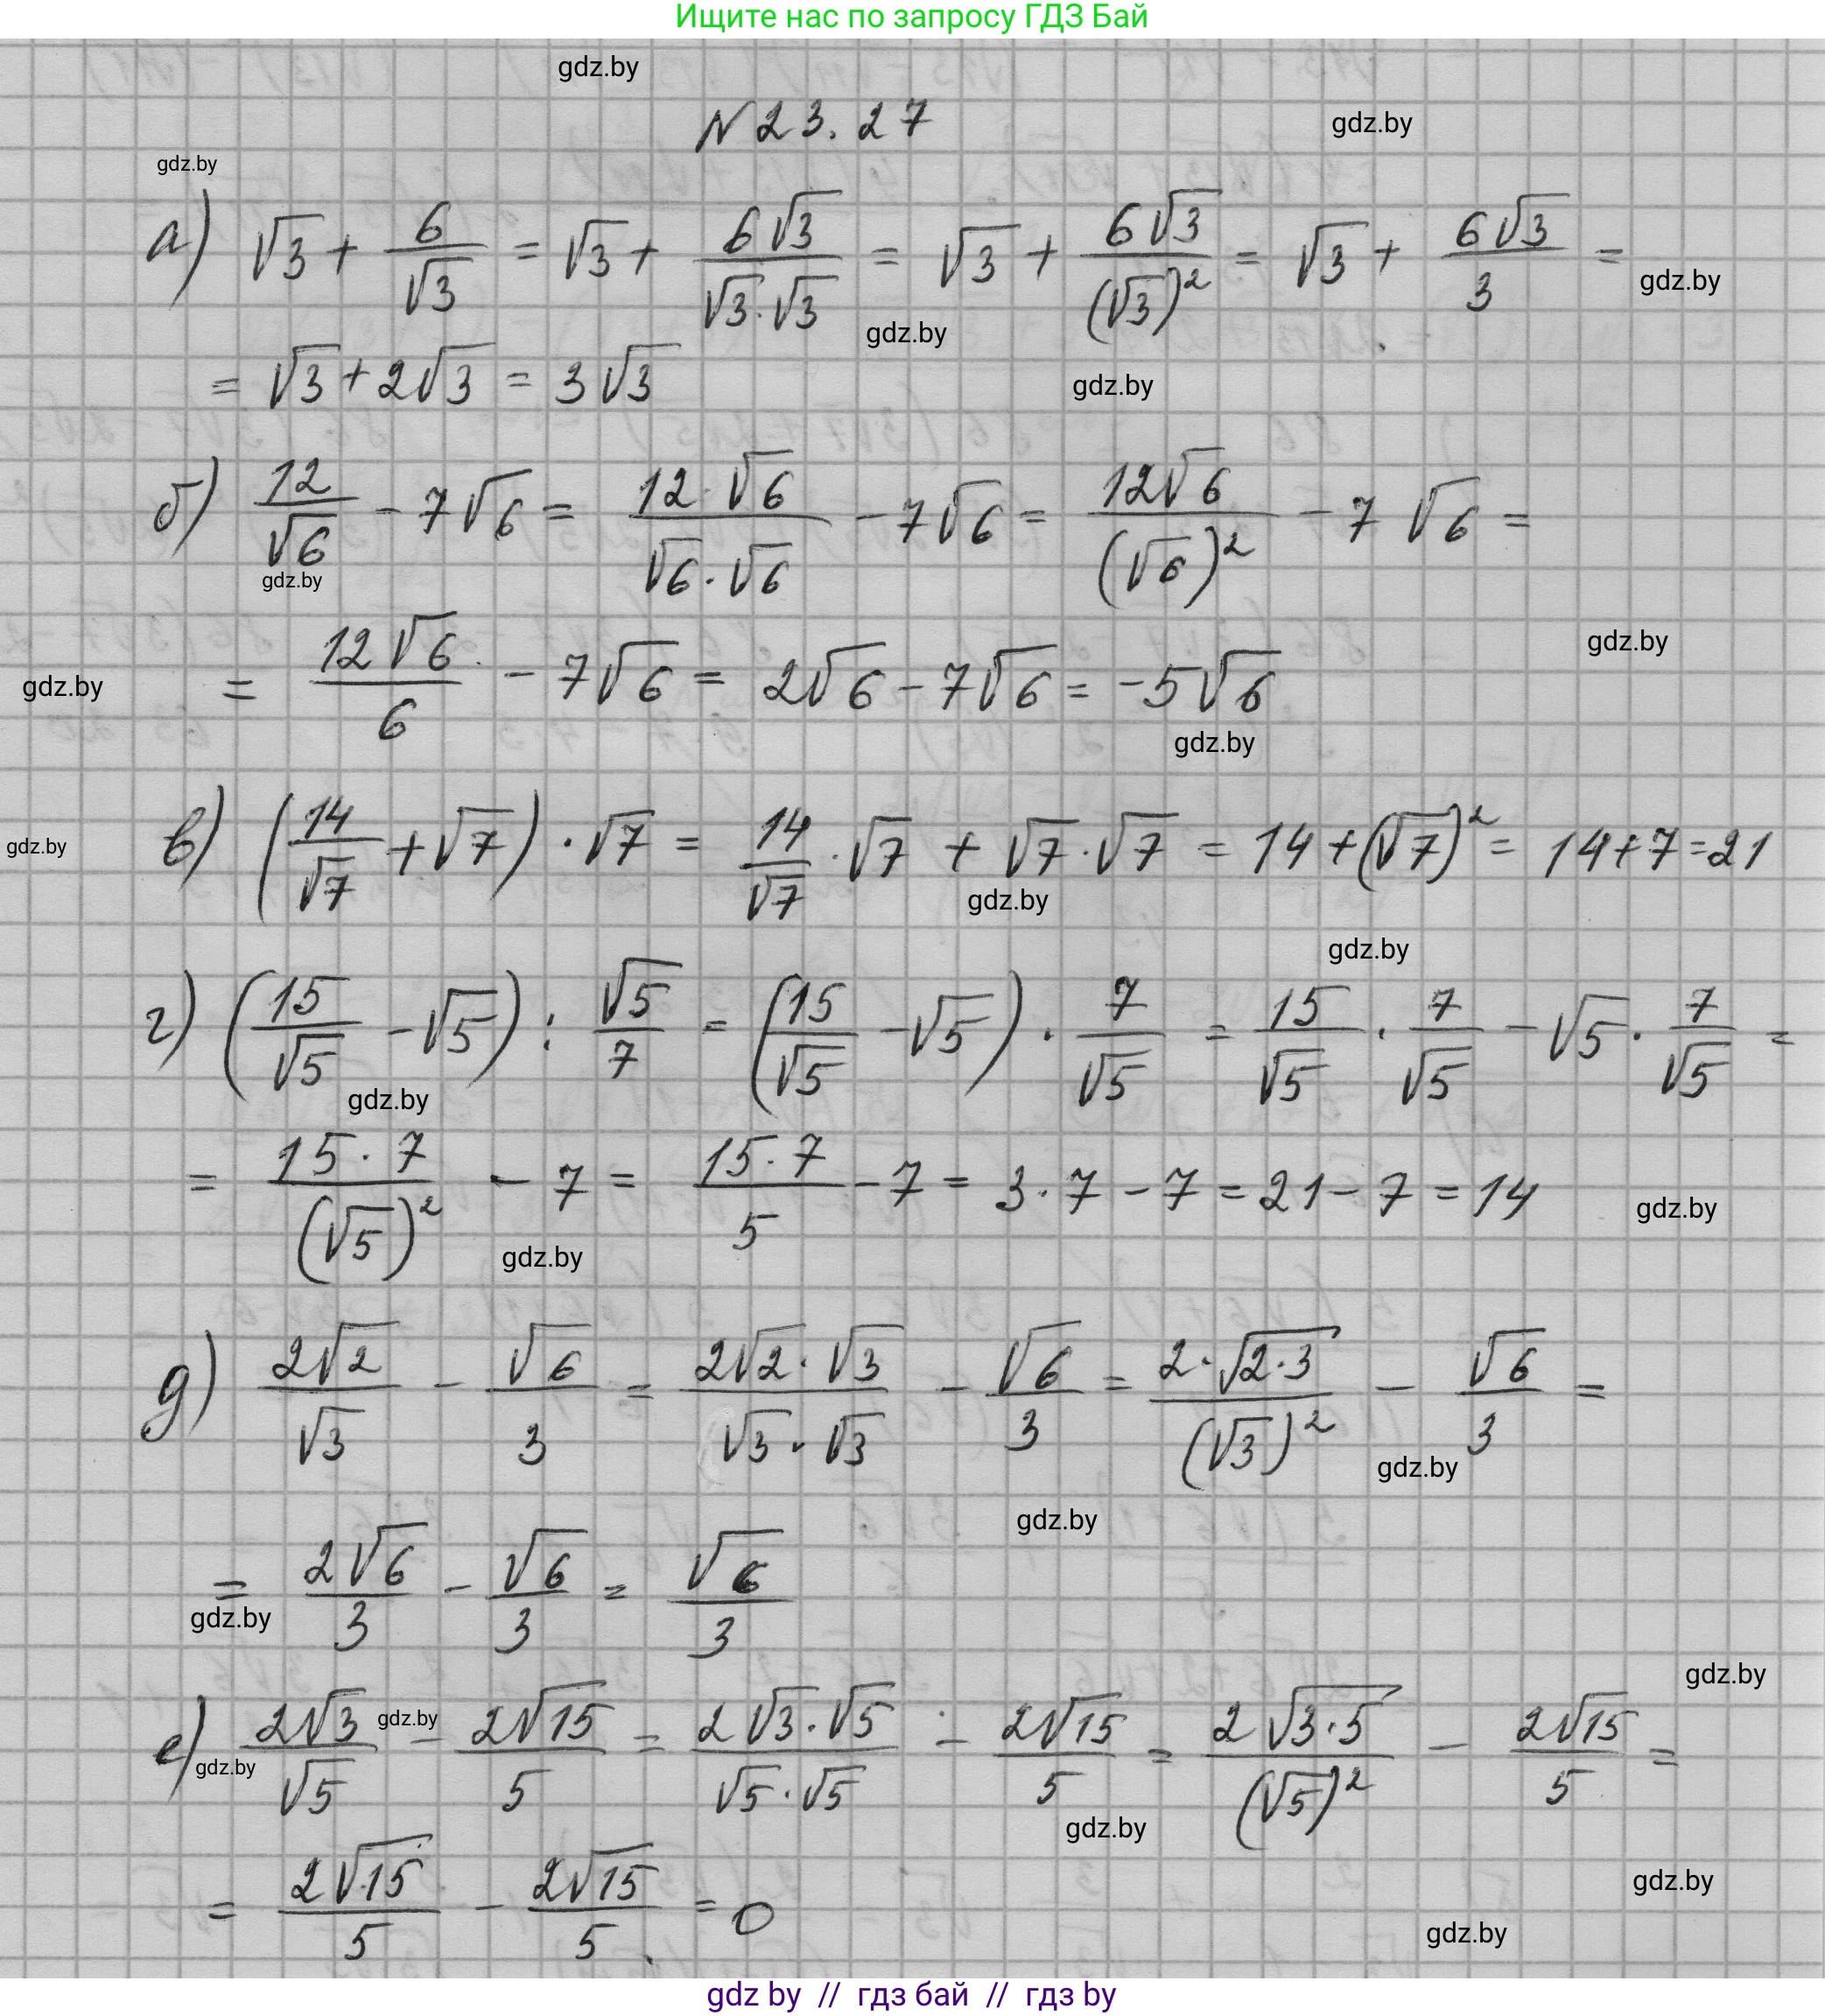 Ищите нас по запросу ГДЗ Бай
gdz.by
N 23.27
gdz.by
gdz.by
а) √3 + 6/√3 = √3 + 6√3/(√3·√3) = √3 + 6√3/(√3)² = √3 + 6√3/3 =
gdz.by
gdz.by
= √3 + 2√3 = 3√3
gdz.by
б) 12/√6 - 7√6 = 12·√6/(√6·√6) - 7√6 = 12√6/(√6)² - 7√6 =
gdz.by
gdz.by
= 12√6/6 - 7√6 = 2√6 - 7√6 = -5√6
gdz.by
gdz.by
в) (14/√7 + √7)·√7 = 14/√7·√7 + √7·√7 = 14 + (√7)² = 14 + 7 = 21
gdz.by
gdz.by
gdz.by
г) (15/√5 - √5) : √5/7 = (15/√5 - √5)·7/√5 = 15/√5·7/√5 - √5·7/√5 =
gdz.by
= 15·7/(√5)² - 7 = 15·7/5 - 7 = 3·7 - 7 = 21 - 7 = 14
gdz.by
gdz.by
д) 2√2/√3 - √6/3 = 2√2·√3/(√3·√3) - √6/3 = 2·√2·3/(√3)² - √6/3 =
gdz.by
gdz.by
= 2√6/3 - √6/3 = √6/3
gdz.by
gdz.by
е) 2√3/√5 - 2√15/5 = 2√3·√5/(√5·√5) - 2√15/5 = 2√3·5/(√5)² - 2√15/5 =
gdz.by
gdz.by
gdz.by
= 2√15/5 - 2√15/5 = 0
gdz.by
gdz.by
gdz by // гдз бай // гдз by